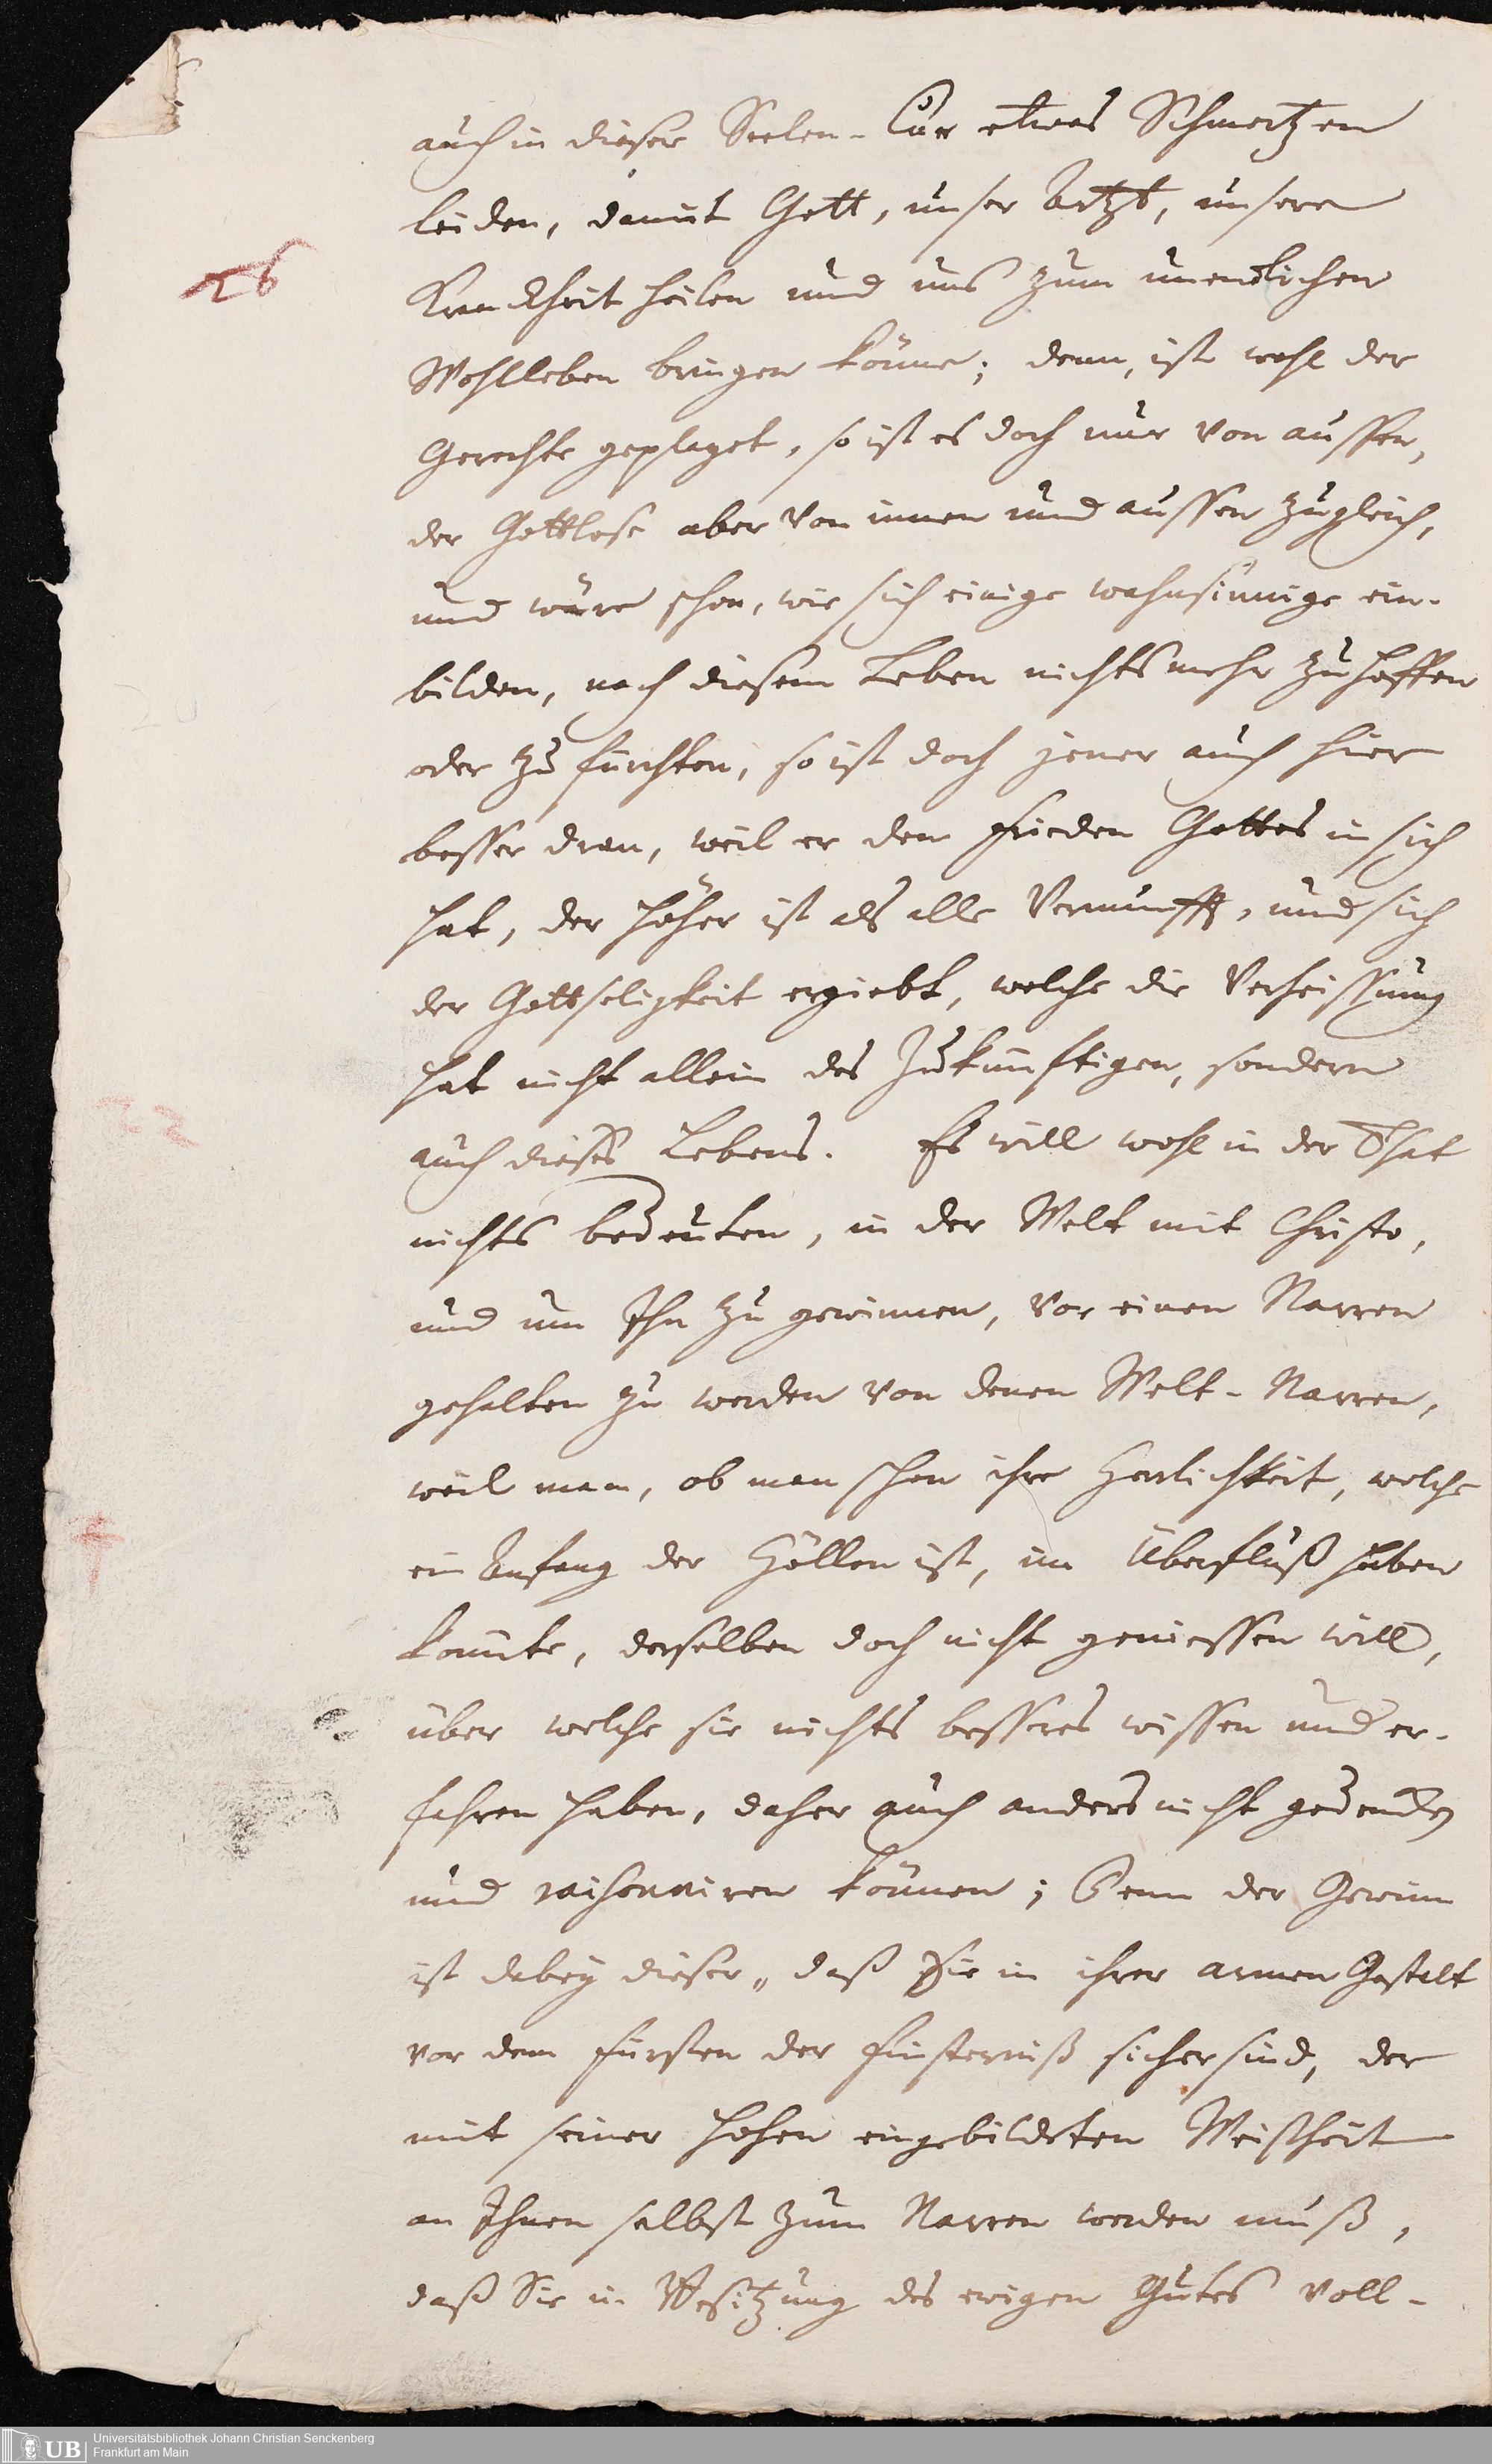 auch in dieser Seelen-Cur etwas Schmertzen
leiden, damit Gott, unser Artzt, unsere
26
Kranckheit heilen und uns zum unendlichen
Wohlleben bringen könne; denn, ist wohl der
Gerechte geplaget, so ist es doch nur von aussen,
der Gottlose aber von innen und aussen zugleich,
und wäre schon, wie sich einige wahnsinnige ein-
bilden, nach diesem Leben nichts mehr zu hoffen
20
oder zu fürchten, so ist doch jener auch hier
besser dran, weil er den Frieden Gottes in sich
hat, der höher ist als alle Vernunfft, und sich
der Gottseligkeit ergiebt, welche die Verheissung
hat nicht allein des Zukünftigen, sondern
22
auch dieses Lebens. Es will wohl in der That
nichts bedeuten, in der Welt mit Christo,
und um Ihn zu gewinnen, vor einen Narren
gehalten zu werden von denen Welt-Narren,
weil man, ob man schon ihre Herrlichkeit, welche
ein Anfang der Höllen ist, im Überfluß haben
könnte, derselben doch nicht geniessen will,
über welche sie nichts bessers wissen und er-
fahren haben, daher auch anders nicht gedencken
und raisonniren können; Denn der Gewinn
ist dabey dieser, daß Sie in ihrer armen Gestalt
vor dem Fürsten der Finsterniß sicher sind, der
mit seiner hohen eingebildeten Weisheit
an Ihnen selbst zum Narren werden muß,
daß Sie in Besitzung des ewigen Gutes voll-
UB
Universitätsbibliothek Johann Christian Senckenberg
Frankfurt am Main